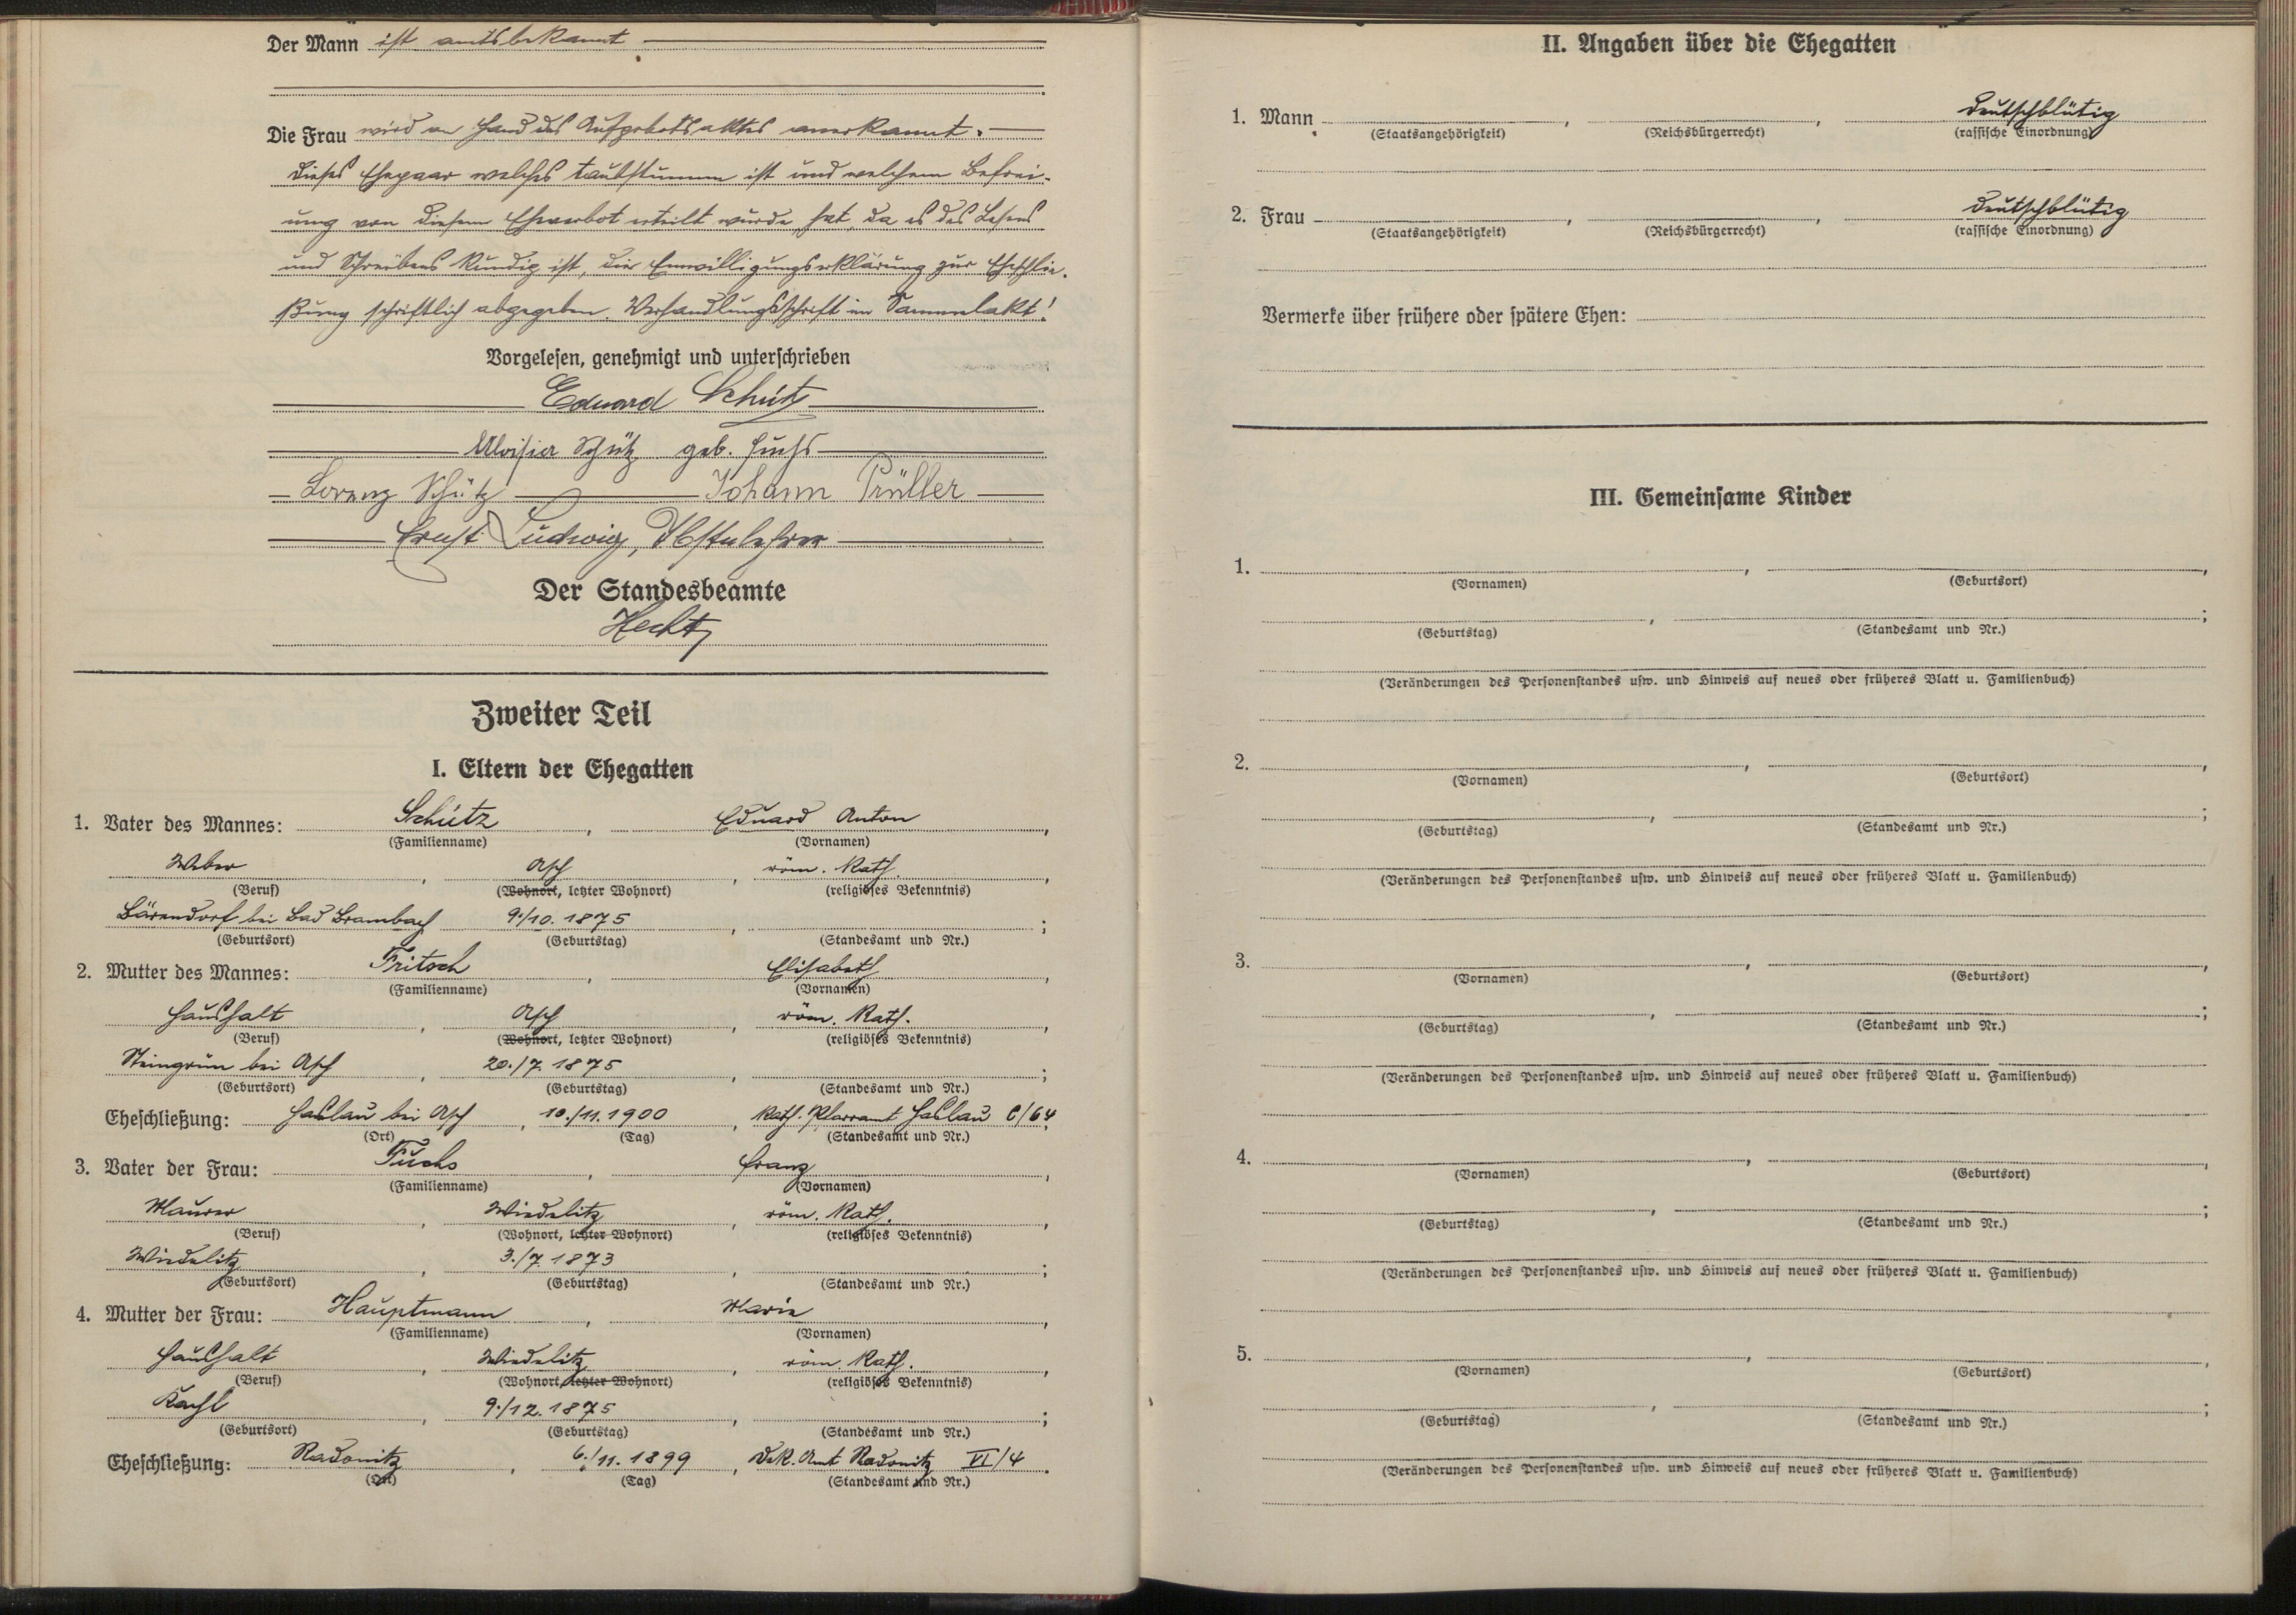 Der Mann ist amtsbekannt
Die Frau wird an Hand des Aufgebotsaktes anerkannt.
Dieses Ehepaar welches taubstumm ist und welchem Befrei-
ung von diesem Eheverbot erteilt wurde, hat, da es des Lesens
und Schreibens kundig ist, die Einwilligungserklärung zur Eheschlie-
ßung schriftlich abgegeben. Verhandlungsschrift im Sammelakt!
Vorgelesen, genehmigt und unterschrieben
Eduard Schütz
Aloisia Schütz geb. Fuchs
Lorenz Schütz Johann Prüller
Ernst Ludwig, Tbstulehrer
Der Standesbeamte
Hecht
Zweiter Teil
I. Eltern der Ehegatten
1. Vater des Mannes: Schütz, Eduard Anton,
(Familienname) (Vornamen)
Weber, Asch, röm. kath.,
(Beruf) (Wohnort, letzter Wohnort) (religiöses Bekenntnis)
Bärendorf bei Bad Brambach 9./10. 1875, ;
(Geburtsort) (Geburtstag) (Standesamt und Nr.)
2. Mutter des Mannes: Fritsch, Elisabeth,
(Familienname) (Vornamen)
Haushalt, Asch, röm. kath.,
(Beruf) (Wohnort, letzter Wohnort) (religiöses Bekenntnis)
Steingrün bei Asch, 20./7. 1875, ;
(Geburtsort) (Geburtstag) (Standesamt und Nr.)
Eheschließung: Haslau bei Asch, 10./11. 1900, kath. Pfarramt Haslau C/64.
(Ort) (Tag) (Standesamt und Nr.)
3. Vater der Frau: Fuchs, Franz,
(Familienname) (Vornamen)
Maurer, Wiedelitz, röm. kath.,
(Beruf) (Wohnort, letzter Wohnort) (religiöses Bekenntnis)
Wiedelitz, 3./7. 1873, ;
(Geburtsort) (Geburtstag) (Standesamt und Nr.)
4. Mutter der Frau: Hauptmann, Marie,
(Familienname) (Vornamen)
Haushalt, Wiedelitz, röm. kath.,
(Beruf) (Wohnort, letzter Wohnort) (religiöses Bekenntnis)
Kachl, 9./12. 1875, ;
(Geburtsort) (Geburtstag) (Standesamt und Nr.)
Eheschließung: Radonitz, 6./11. 1899, Dek. Amt Radonitz VI/4.
(Ort) (Tag) (Standesamt und Nr.)
II. Angaben über die Ehegatten
1. Mann, , deutschblütig
(Staatsangehörigkeit) (Reichsbürgerrecht) (rassische Einordnung)
2. Frau, , deutschblütig
(Staatsangehörigkeit) (Reichsbürgerrecht) (rassische Einordnung)
Vermerke über frühere oder spätere Ehen:
III. Gemeinsame Kinder
1. , ,
(Vornamen) (Geburtsort)
, ;
(Geburtstag) (Standesamt und Nr.)
(Veränderungen des Personenstandes usw. und Hinweis auf neues oder früheres Blatt u. Familienbuch)
2. , ,
(Vornamen) (Geburtsort)
, ;
(Geburtstag) (Standesamt und Nr.)
(Veränderungen des Personenstandes usw. und Hinweis auf neues oder früheres Blatt u. Familienbuch)
3. , ,
(Vornamen) (Geburtsort)
, ;
(Geburtstag) (Standesamt und Nr.)
(Veränderungen des Personenstandes usw. und Hinweis auf neues oder früheres Blatt u. Familienbuch)
4. , ,
(Vornamen) (Geburtsort)
, ;
(Geburtstag) (Standesamt und Nr.)
(Veränderungen des Personenstandes usw. und Hinweis auf neues oder früheres Blatt u. Familienbuch)
5. , ,
(Vornamen) (Geburtsort)
, ;
(Geburtstag) (Standesamt und Nr.)
(Veränderungen des Personenstandes usw. und Hinweis auf neues oder früheres Blatt u. Familienbuch)